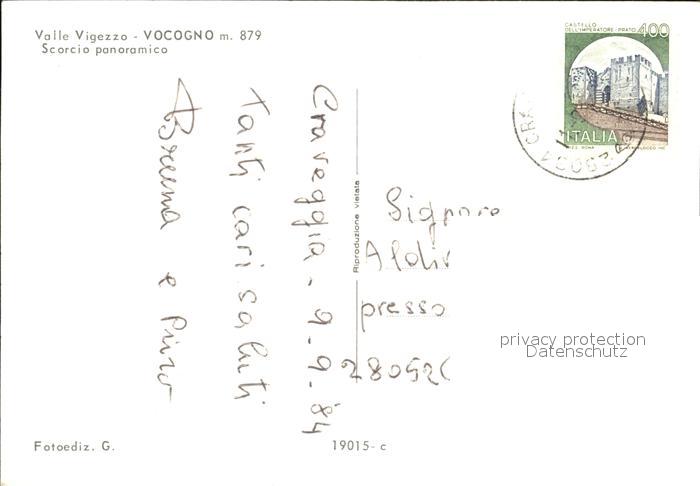 Valle Vigezzo - VOCOGNO m. 879
Scorcio panoramico
CASTELLO
DELL'IMPERATORE - PRATO
400
ITALIA
Craveggia - 9.9.84
Tanti cari saluti
e Piero
Riproduzione vietata
Signora
presso
privacy protection
Datenschutz
Fotoediz. G.
19015 - c